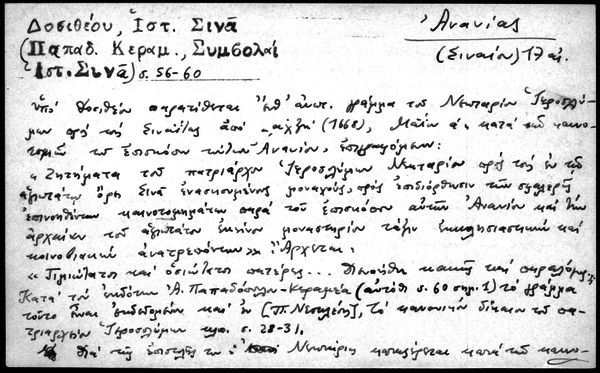 Δοσιθέου, Ἱστ. Σινᾶ
(Παπαδ. Κεραμ., Συμβολαί
Ἱστ. Σινᾶ) σ. 56-60
Ἀνανίας
(Σιναίου) 17 αἰ.
ὑπό Δοσιθέου παρατίθεται ἔνθ' ἀνωτ. γράμμα τοῦ Νεκταρίου Ἱεροσολύ-
μων πρός τούς Σιναΐτας ἀπό αχξη' (1668), Μαΐου α' κατά τῶν καινο-
τομιῶν τοῦ ἐπισκόπου τούτων Ἀνανίου, ἐπιγραφόμενον:
« Ζητήματα τοῦ πατριάρχου Ἱεροσολύμων Νεκταρίου πρός τούς ἐν τῷ
ἁγιωτάτῳ ὄρει Σινᾶ ἐνασκουμένους μοναχούς, πρός ἐπιδιόρθωσιν τῶν
ἐπινοηθέντων καινοτομημάτων παρά τοῦ ἐπισκόπου αὐτῶν Ἀνανίου καί τήν
ἀρχαίαν τοῦ ἁγιωτάτου ἐκείνου μοναστηρίου τάξιν ἐκκλησιαστικήν καί
κοινοβιακήν ἀνατρεπόντων». Ἄρχεται:
« Τιμιώτατοι καί ὁσιώτατοι πατέρες...
Κατά τόν ἐκδότην Ἀ. Παπαδόπουλον-Κεραμέα (αὐτόθι σ. 60 σημ. 1) τό γράμμα
τοῦτο εἶναι ἐκδεδομένον καί ἐν τό κανονικόν δίκαιον τοῦ πα-
τριαρχείου Ἱεροσολύμων κλπ. σ. 28-31.
Διά τῆς ἐπιστολῆς του ὁ Νεκτάριος καταφέρεται κατά τῶν καινο-